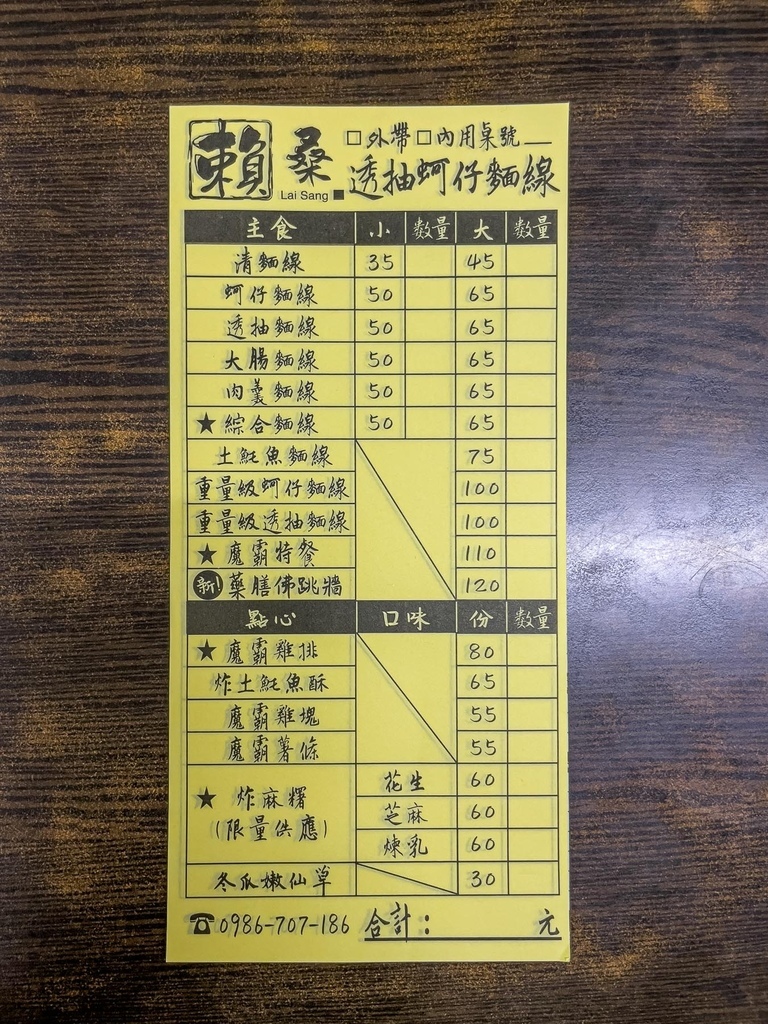 賴桑 □外帶 □內用桌號__
Lai Sang ■ 透抽蚵仔麵線
主食 小 數量 大 數量
清麵線 35 45
蚵仔麵線 50 65
透抽麵線 50 65
大腸麵線 50 65
肉羹麵線 50 65
★ 綜合麵線 50 65
土魠魚麵線 75
重量級蚵仔麵線 100
重量級透抽麵線 100
★ 魔霸特餐 110
新! 藥膳佛跳牆 120
點心 口味 份 數量
★ 魔霸雞排 80
炸土魠魚酥 65
魔霸雞塊 55
魔霸薯條 55
★ 炸麻糬 (限量供應) 花生 60
芝麻 60
煉乳 60
冬瓜嫩仙草 30
☎0986-707-186 合計：　　　元